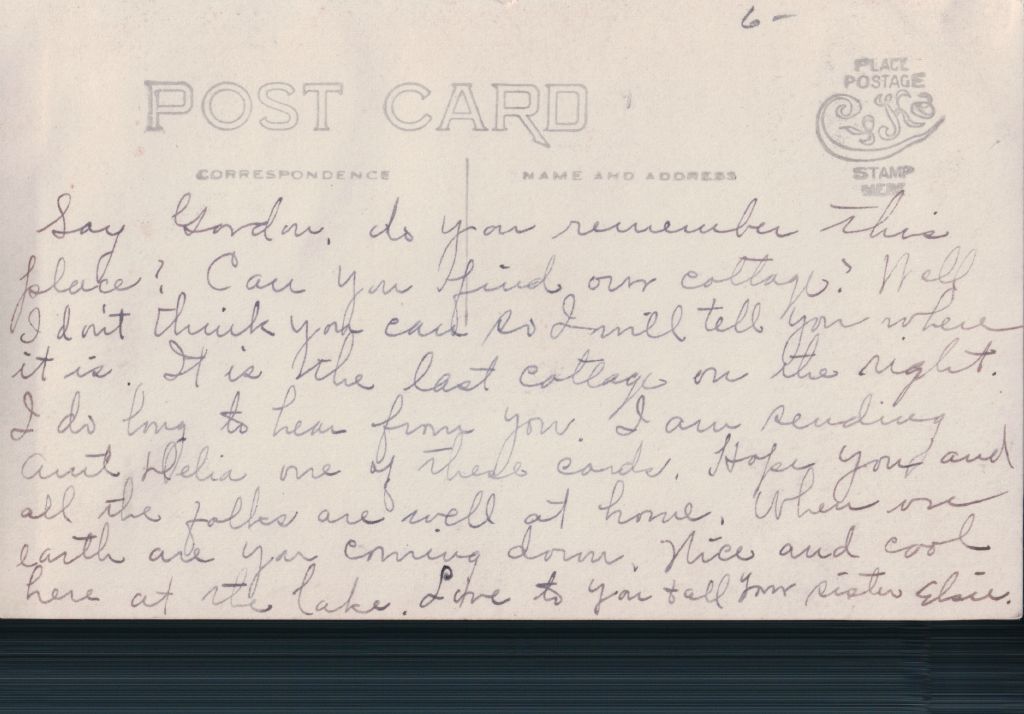 6-
POST CARD
PLACE
POSTAGE
CyKo
STAMP
HERE
CORRESPONDENCE
NAME AND ADDRESS
Say Gordon, do you remember this
place? Can you find our cottage? Well
I don't think you can so I will tell you where
it is. It is the last cottage on the right.
I do long to hear from you. I am sending
aunt Delia one of these cards. Hope you and
all the folks are well at home. When on
earth are you coming down. Nice and cool
here at the lake. Love to you & all your sister Elsie.